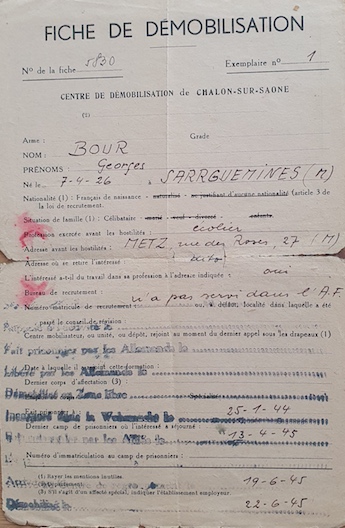 FICHE DE DÉMOBILISATION
N° de la fiche 5830 Exemplaire n° 1
CENTRE DE DÉMOBILISATION de CHALON-SUR-SAONE
(1)
Arme : Grade
NOM : BOUR
PRÉNOMS : Georges
Né le 7-4-26 à SARRGUEMINES (M)
Nationalité (1) : Français de naissance - naturalisé - ne justifiant d'aucune nationalité (article 3 de
la loi de recrutement.
Situation de famille (1) : Célibataire - marié - veuf - divorcé - enfants.
Profession exercée avant les hostilités : écolier
Adresse avant les hostilités : METZ, rue des Roses, 27 (M)
Adresse où se retire l'intéressé :
L'intéressé a-t-il du travail dans sa profession à l'adresse indiquée : oui
Bureau de recrutement : n'a pas servi dans l'A.F.
Numéro matricule de recrutement ou, à défaut, localité dans laquelle a été
passé le conseil de révision :
Centre mobilisateur, ou unité, ou dépôt, rejoint au moment du dernier appel sous les drapeaux (1)
Fait prisonnier par les Allemands le
Date à laquelle il a rejoint cette formation :
Libéré par les Allemands le
Dernier corps d'affectation (3) :
Démobilisé en Zone libre
Incorporé dans la Wehrmacht le 25-1-44
Dernier camp de prisonniers où l'intéressé a séjourné : 13-4-45
par les Alliés le
Numéro d'immatriculation au camp de prisonniers :
(1) Rayer les mentions inutiles. 19-6-45
(3) S'il s'agit d'un affecté spécial, indiquer l'établissement employeur.
Démobilisé le 22-6-45